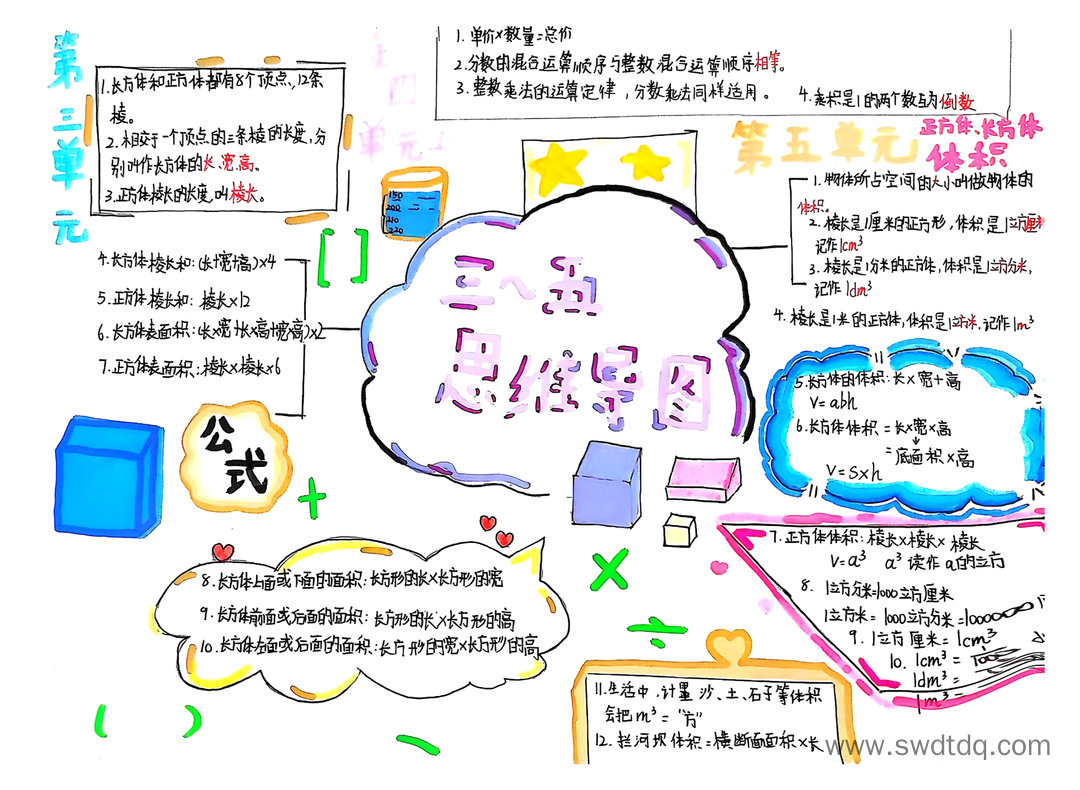 第三单元
1.长方体和正方体都有8个顶点,12条
棱。
2.相交于一个顶点的三条棱的长度,分
别叫作长方体的长、宽、高。
3.正方体棱长的长度,叫棱长。
4.长方体棱长和:(长+宽+高)×4
5.正方体棱长和:棱长×12
6.长方体表面积:(长×宽+长×高+宽×高)×2
7.正方体表面积:棱长×棱长×6
公式
8.长方体上面或下面的面积:长方形的长×长方形的宽
9.长方体前面或后面的面积:长方形的长×长方形的高
10.长方体左面或后面的面积:长方形的宽×长方形的高
四
单元
1.单价×数量=总价
2.分数的混合运算顺序与整数混合运算顺序相等。
3.整数乘法的运算定律,分数乘法同样适用。
4.乘积是1的两个数互为倒数
150
200
210
220
三~五
思维导图
第五单元
正方体、长方体
体积
1.物体所占空间的大小叫做物体的
体积。
2.棱长是1厘米的正方形,体积是1立方厘米
记作1cm³
3.棱长是1分米的正方体,体积是1立方分米,
记作1dm³
4.棱长是1米的正方体,体积是1立方米.记作1m³
5.长方体的体积:长×宽+高
V=abh
6.长方体体积=长×宽×高
=底面积×高
V=s×h
7.正方体体积:棱长×棱长×棱长
V=a³ a³读作a的立方
8. 1立方分米=1000立方厘米
1立方米=1000立方分米=100000
9.1立方厘米=1cm³
10.1cm³=
1dm³=
1m³=
11.生活中,计量沙、土、石子等体积
会把m³="方"
12.拦河坝体积=横断面面积×长
www.swdtdq.com